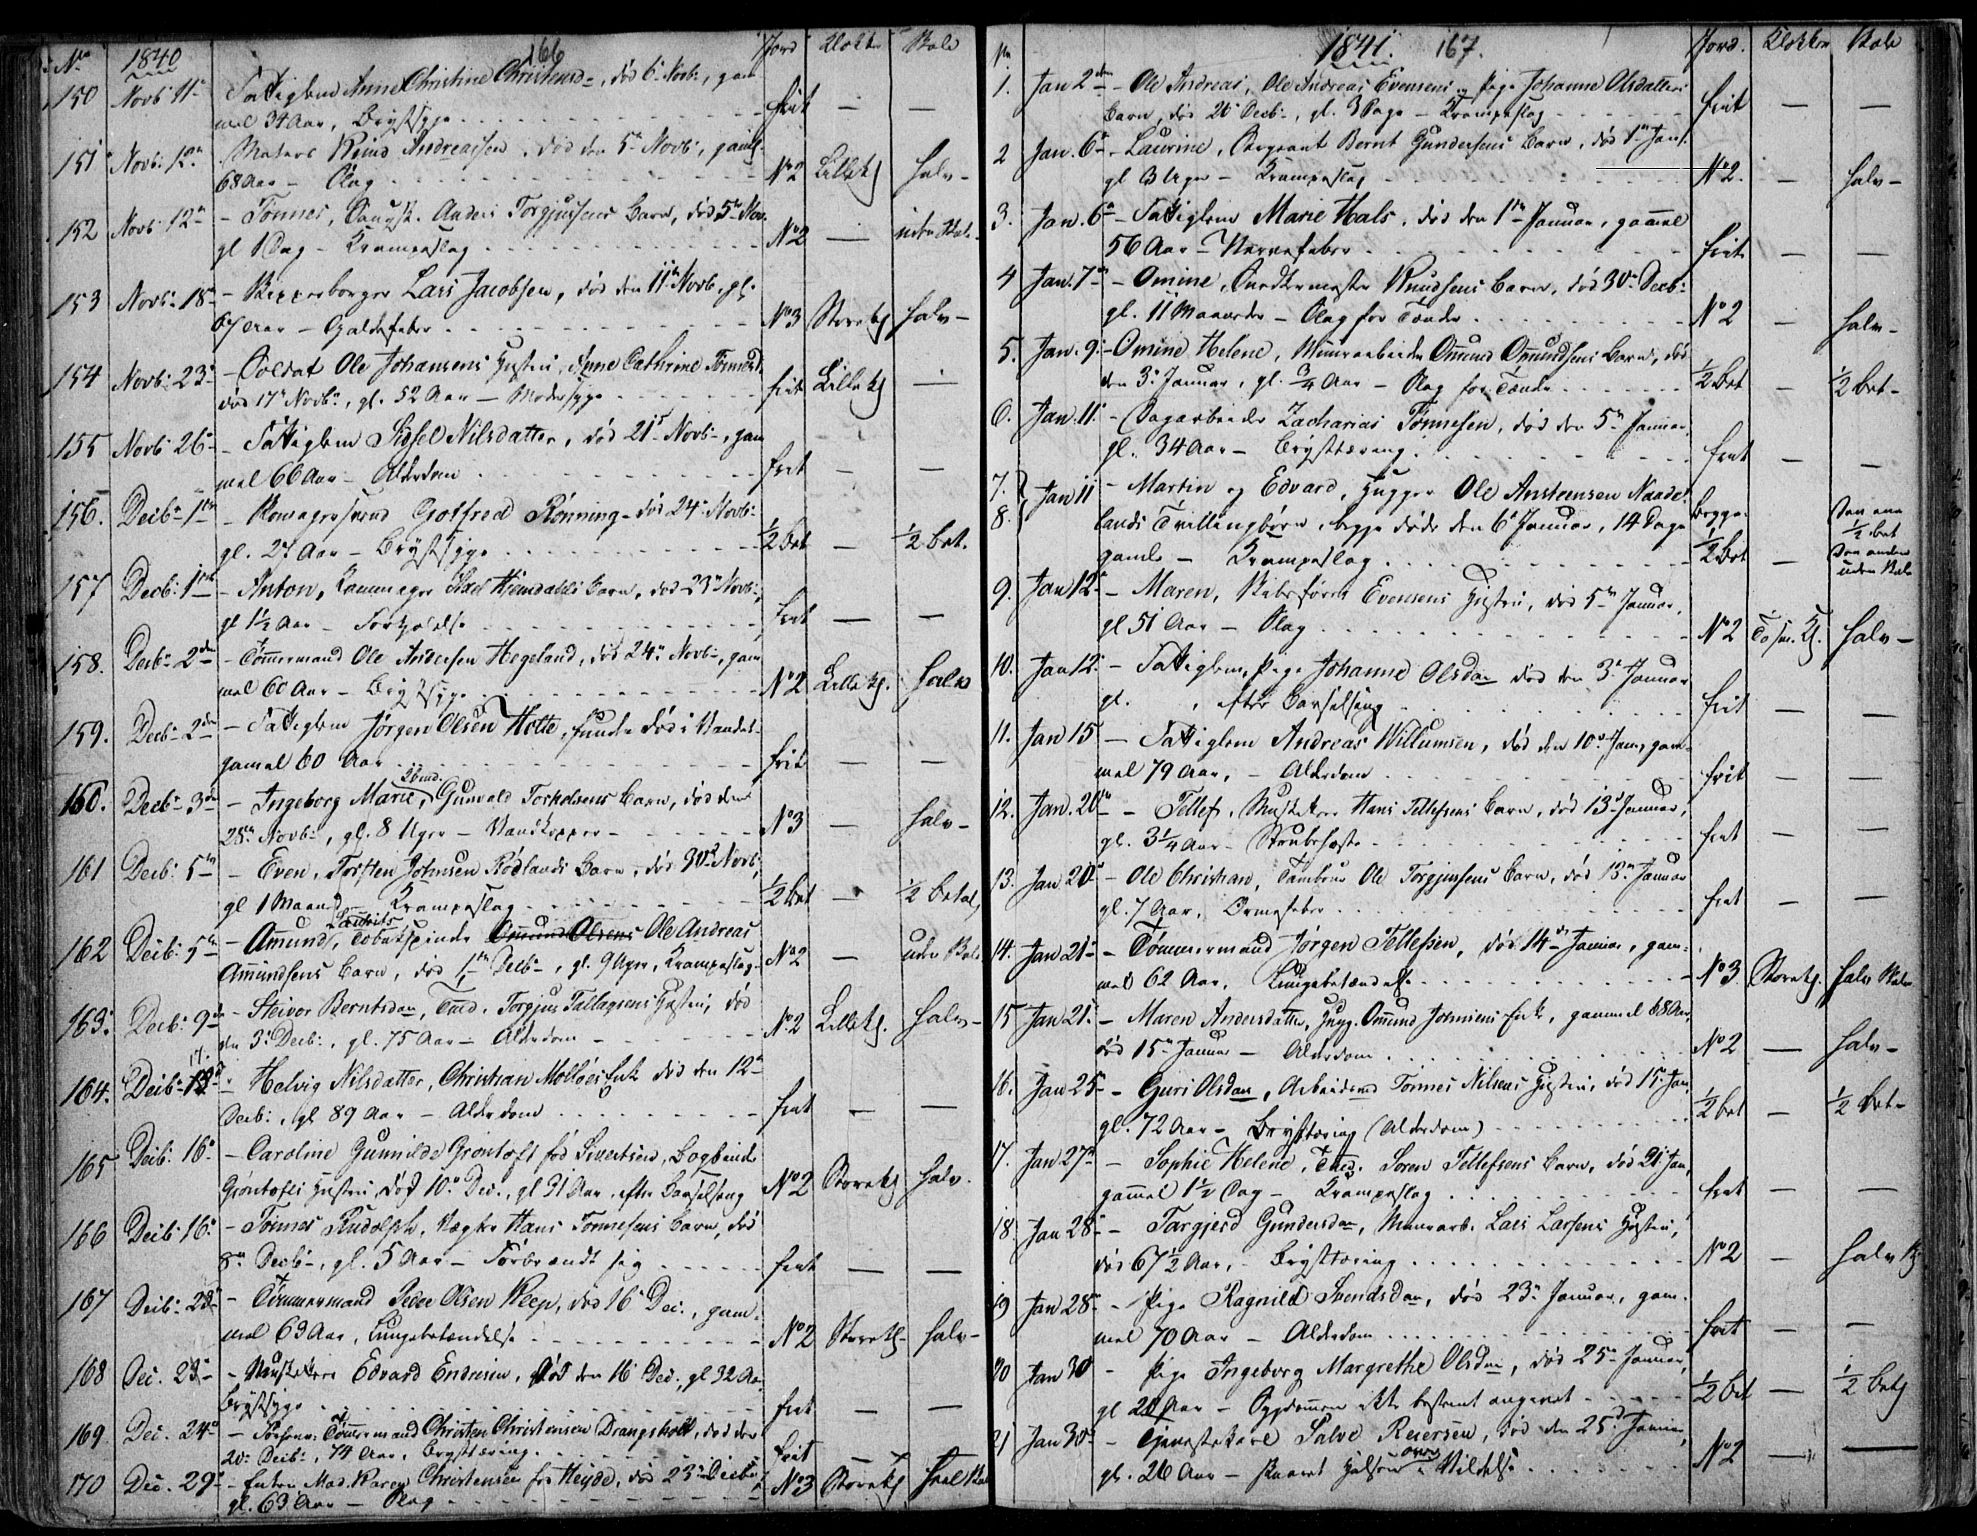 No 1840 166 Jord Klokke Bale
150 Novb 11te Fattiglem Anne Christine Christensd., død 6te Novb:, gam
mel 34 Aar, Brystsyge frit — —
151 Novb: 12te Matros Knud Andreassen, død den 5te Novb:, gaml.
68 Aar – Slag No 2 Lillekl halv –
152 Novb: 12te – Tønnes, Anders Torgjusens Barn, død 5te Nov.
gl 1 Dag – Krampeslag No 2 — uden Bale
153 Novb: 18de – Lars Jacobsen, død den 11te Novb., gl.
67 Aar – Galdefeber No 3 Storekl halv –
154 Novb: 23de – Soldat Ole Johansens Hustru, Anne Cathrine Tønnesd.
død 17de Novbr, gl. 52 Aar – Modersyge frit Lillekl —
155 Novb 26de – Fattiglem Sidsel Nilsdatter, død 21de Novb:, gam
mel 66 Aar – Alderdom frit — —
156. Decb: 1ste – Gotfred Rønning – død 24de Novb:
gl. 27 Aar – Brystsyge ½ bet — ½ bet.
157 Decb: 1ste – Anton, Hjemdahls Barn, død 23de Novb:,
gl 1½ Aar – Forkjølelse frit — —
158. Decb: 2den – Tømmermand Ole Andersen Hegeland, død 24de Novb:, gam
mel 60 Aar – Brystsyge No 2 Lillekl. halv
159. Decb: 2den – Fattiglem Jørgen Olsen Holte, funden død i Vandet
gamel 60 Aar frit — —
160. Decb: 3die – Ingeborg Marie, Gunvald Torkelsens Barn, død den
28de Novb:, gl. 8 Uger – Vandkopper – No 3 — halv –
161 Decb: 5te – Even, Torsten Johnsen Rødlands Barn, død 30te Novb:,
gl 1 Maaned – Krampeslag ½ bet — ½ betal,
162 Decb: 5te – Amund Laurits, Tobakspinder Omund Olsens Ole Andreas
Amundsens Barn, død 1ste Decb:, gl. 9 Uger, Krampeslag No 2 — uden Bale
163. Decb: 9de – Steivor Berntsdr, Tmd. Torgjus Tallagsens Hustru, død
den 3die Decb:, gl. 75 Aar – Alderdom – No 2 Lillekl. halv –
164. Decb: – Helvig Nilsdatter, Christian Molløes Enke død den 12te
Decb:, gl 89 Aar – Alderdom frit — —
165 Decb: 16de – Caroline Gunnilde Grøntoft fød Sivertsen, Bogbinder
Grøntofts Hustru død 10de Dec., gl 31 Aar, efter Barselseng No 2 Storekl halv.
166 Decb 16de – Tønnes Rudolph, Vægter Hans Tønnesens Barn, død
8de Decb:, gl. 5 Aar – Forbrændt sig frit — —
167 Decb: 23de – Tømmermand Peder Olsen Kleep, død 16de Dec., gam
mel 63 Aar, Lungebetændelse No 2 Storekl halv –
168 Dec. 23de – Musketeer Edvard Endresen, død den 16 Dec., gl 32 Aar,
Brystsyge frit — —
169 Dec. 24de – Tømmermand Christen Christensen Drangsholt, død den
20de Decb:, 74 Aar, Brysttæring frit — —
170 Dec. 29de – Enken Mad. Karen Christensen fød Heyde, død 23de Decb:,
gl. 63 Aar – Slag No 3 Storekl heel Bale
No 1841. 167. Jord. Klokken Bale
1. Jan 2den – Ole Andreas, Ole Andreas Evensens og Pige Johanne Olsdatters
Barn, død 26 Decb:, gl. 3 Dage – Krampeslag frit — —
2 Jan. 6te – Laurine, Sergeant Bernt Gundersens Barn, død 1ste Jan.
gl 3 Uger – Krampeslag No 2. — halv –
3. Jan. 6te – Fattiglem Marie Hals, død den 1ste Januar, gammel
56 Aar – Nervefeber frit — —
4 Jan. 7de – Omine, Snedkermester Knudsens Barn, død 30te Decb:
gl. 11 Maaneder – Slag for Tænder No 2 — halv –
5. Jan. 9de – Omine Helene, Muurarbeider Omund Omundsens Barn, død
den 3die Januar, gl. ¾ Aar – Slag for Tænder ½ bet — ½ bet –
6. Jan. 11te – Dagarbeider Zacharias Tønnesen, død den 5te Januar,
gl. 34 Aar – Brysttæring frit — —
7. 8. Jan 11 – Martin og Edvard, Hugger Ole Anstensen Naade-
lands Tvillingbørn, begge døde den 6te Januar, 14 Dage
gamle – Krampeslag Begge ½ bet — Den ene ½ bet den anden uden Bale
9. Jan 12te – Maren, Skibsfører Evensens Hustru, død 5te Januar,
gl 51 Aar – Slag No 2 To sm. Kl. halv –
10. Jan 12te – Fattiglem, Pige Johanne Olsdr død den 3die Januar
gl. , efter Barselseng frit — —
11. Jan 15 – Fattiglem Andreas Willumsen, død den 10de Jan, gam-
mel 79 Aar, – Alderdom frit — —
12. Jan. 20de – Tellef, Musketeer Hans Tellefsens Barn, død 13de Januar,
gl. 3¼ Aar – Strubehoste frit — —
13. Jan 20de – Ole Christian, Tambour Ole Torgjusens Barn, død 13de Januar
gl. 7 Aar, Ormefeber frit — —
14. Jan 21de – Tømmermand Jørgen Tellefsen, død 14de Januar, gam-
mel 62 Aar, Lungebetændelse No 3 Storekl. halv Bale
15 Jan 21de – Maren Andersdatter, Hugg. Omund Johnsens Enke, gammel 68 Aar,
død 15de Januar – Alderdom No 2 — halv –
16. Jan 25 – Guri Olsdr, Arbeidsmd Tønnes Nilsens Hustru, død 15. Jan,
gl. 72 Aar – Brysttæring (Alderdom) ½ bet — ½ bet –
17. Jan 27de – Sophie Helene, Tmd. Søren Tellefsens Barn, død 21. Jan,
gammel 1½ Dag – Krampeslag frit — —
18. Jan 28de – Targjerd Gundersdr, Muurarb. Lars Larsens Hustru,
død 67½ Aar, – Brysttæring No 2 — halv
19 Jan 28de – Pige Ragnild Svendsdr, død 23de Januar, gam-
mel 70 Aar – Alderdom frit — —
20 Jan 30 – Pige Ingeborg Margrethe Olsdr, død 25de Januar,
gl 20 Aar – Sygdommen ikke bestemt angivet ½ bet — ½ bet
21 Jan 30te – Tjenestekarl Salve Reiersen, død den 25de Januar,
gl. 26 Aar – skaaret Halsen over i Vildelse No 2 — —